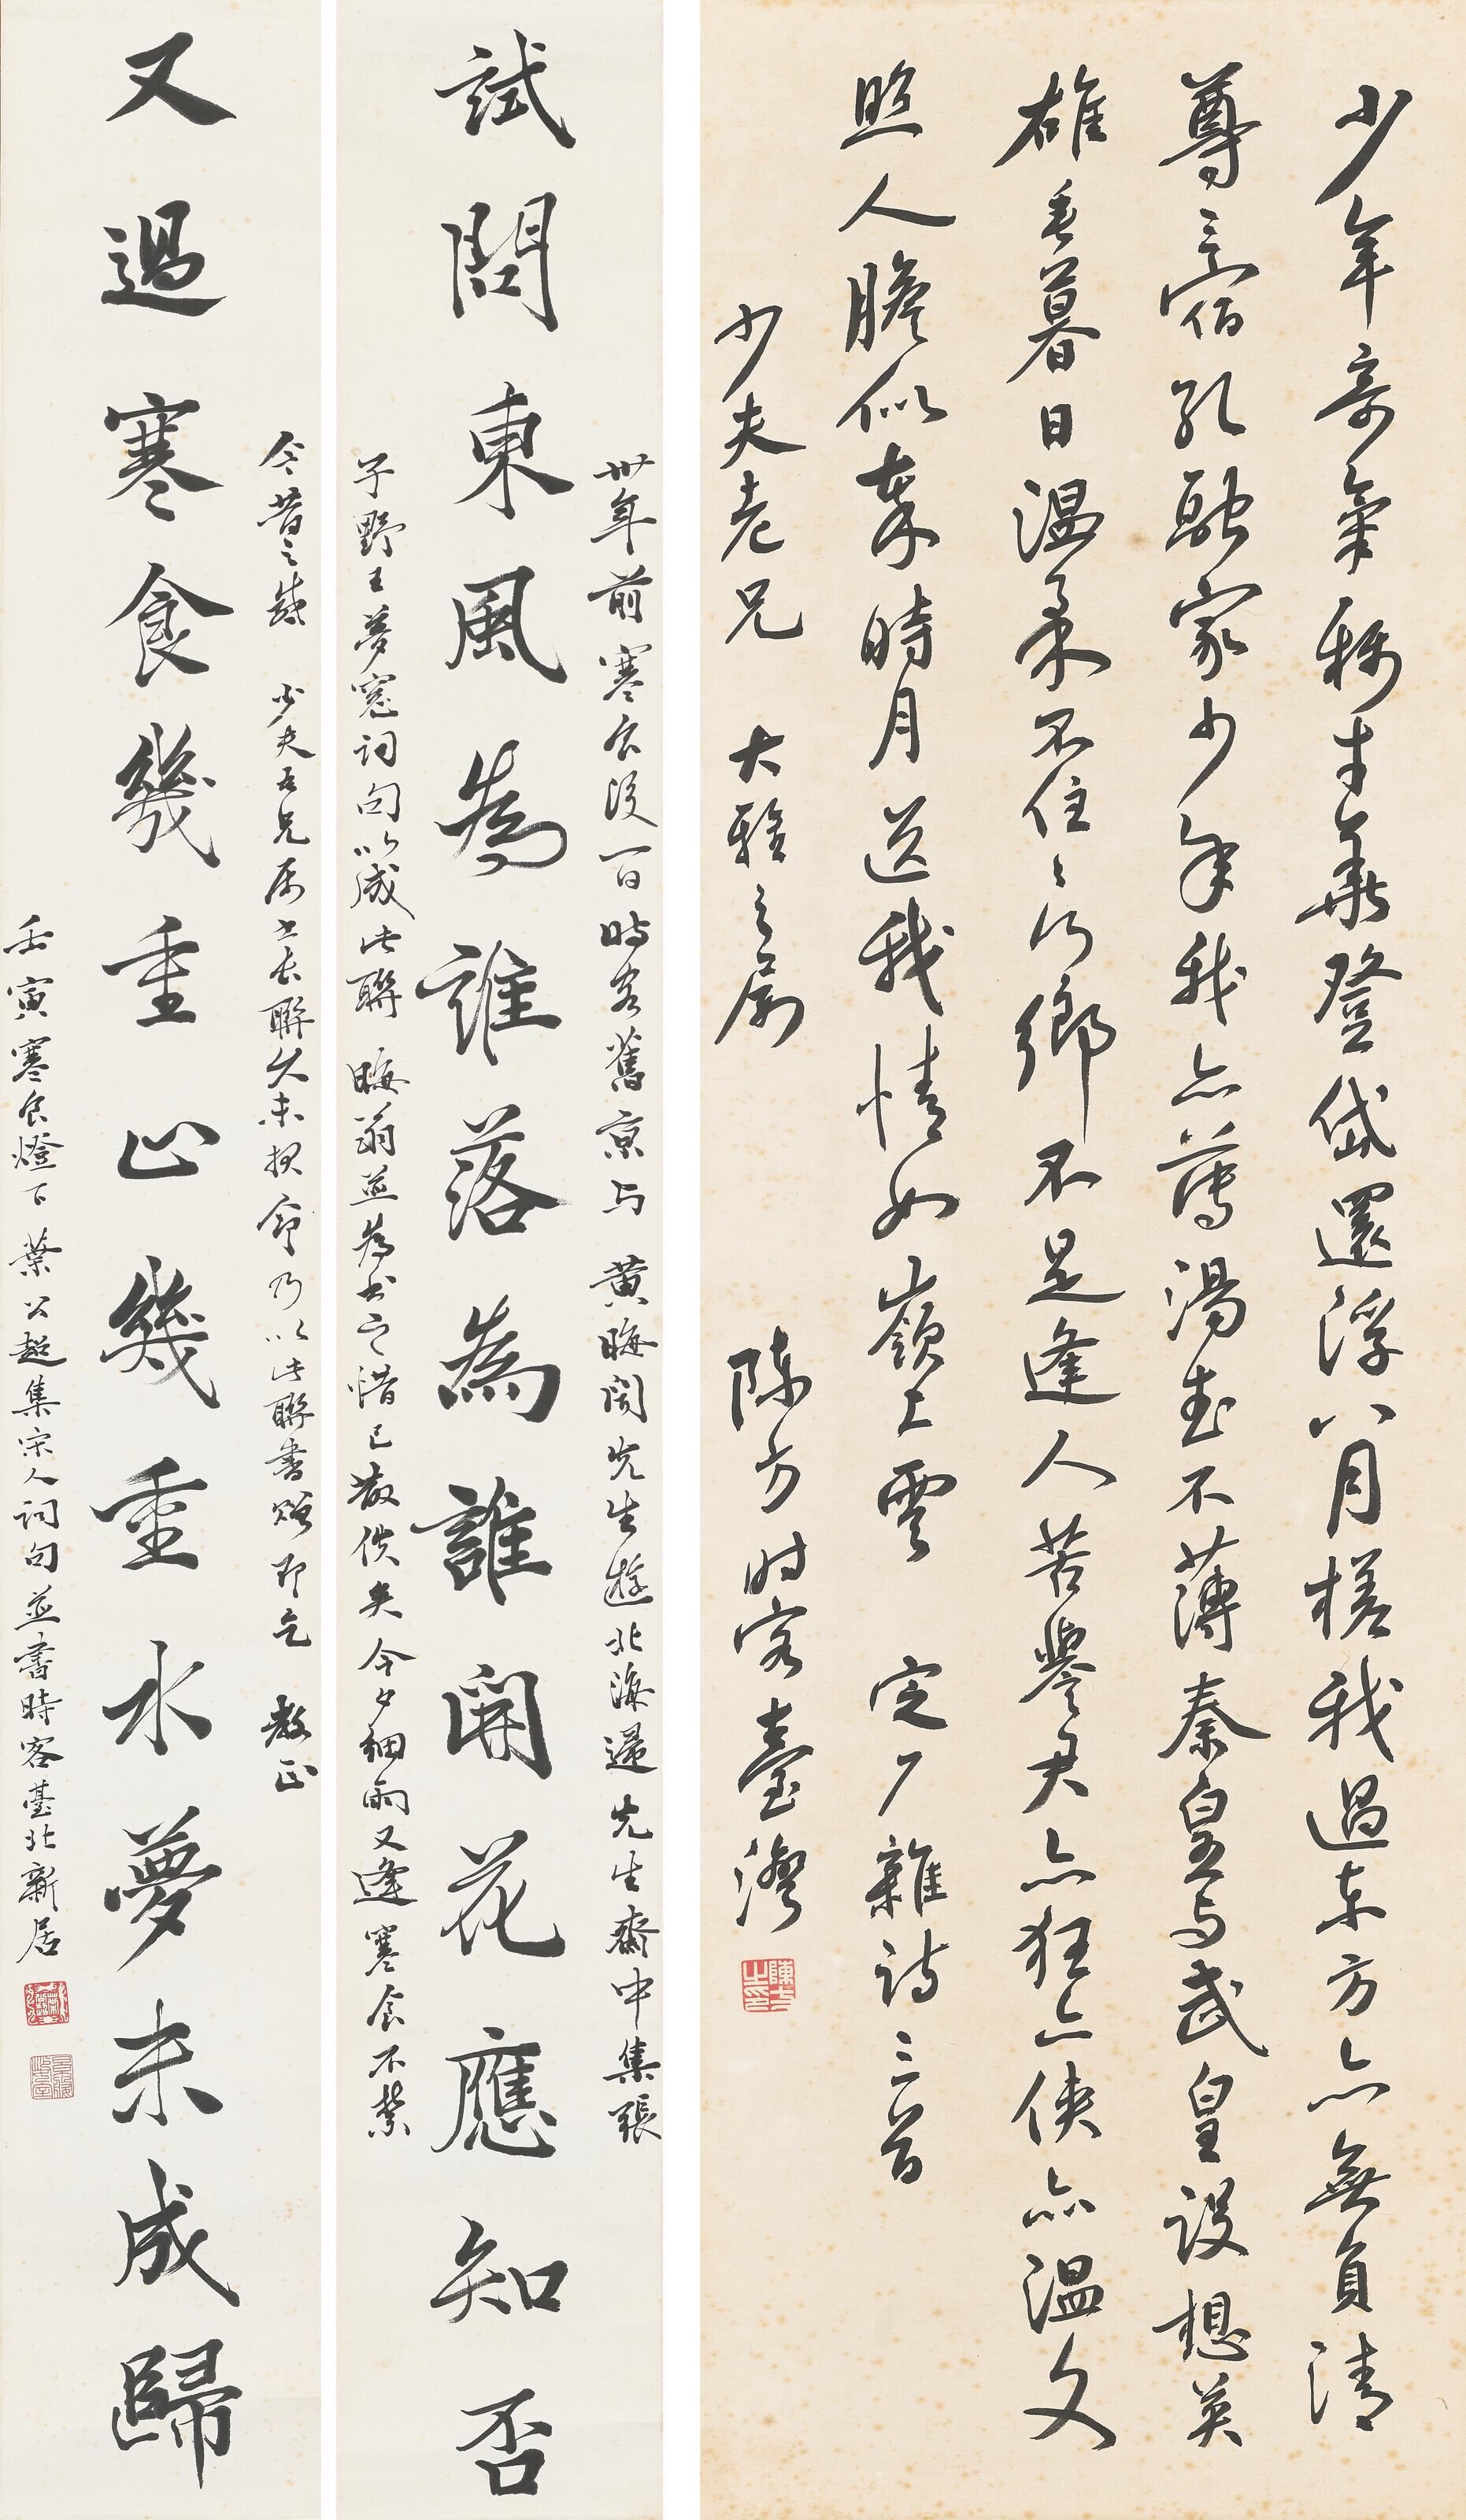 少年奇氣稱才華登岱還浮八月槎我過東方亦無負清
尊三宿孔融家少年我亦薄湯武不薄秦皇与武皇設想英
雄垂暮日溫柔不住住何鄉不是逢人苦譽君亦狂亦俠亦溫文
照人膽似秦時月送我情如嶺上雲 定厂雜詩三首
少夫老兄 大雅之屬 陳方时客臺灣
陳方之印
卅年前寒食後一日時客舊京与 黃晦聞先生遊北海還先生齋中集張
試問東風為誰落為誰開花應知否
子野王夢窗詞句以成此聯 晦翁並為書之惜已散佚矣今夕細雨又逢寒食不禁
今昔之感 少夫吾兄屬書長聯久未報命乃以此聯書贈即乞 教正
又過寒食幾重山幾重水夢未成歸
壬寅寒食燈下葉公超集宋人詞句並書時客臺北新居